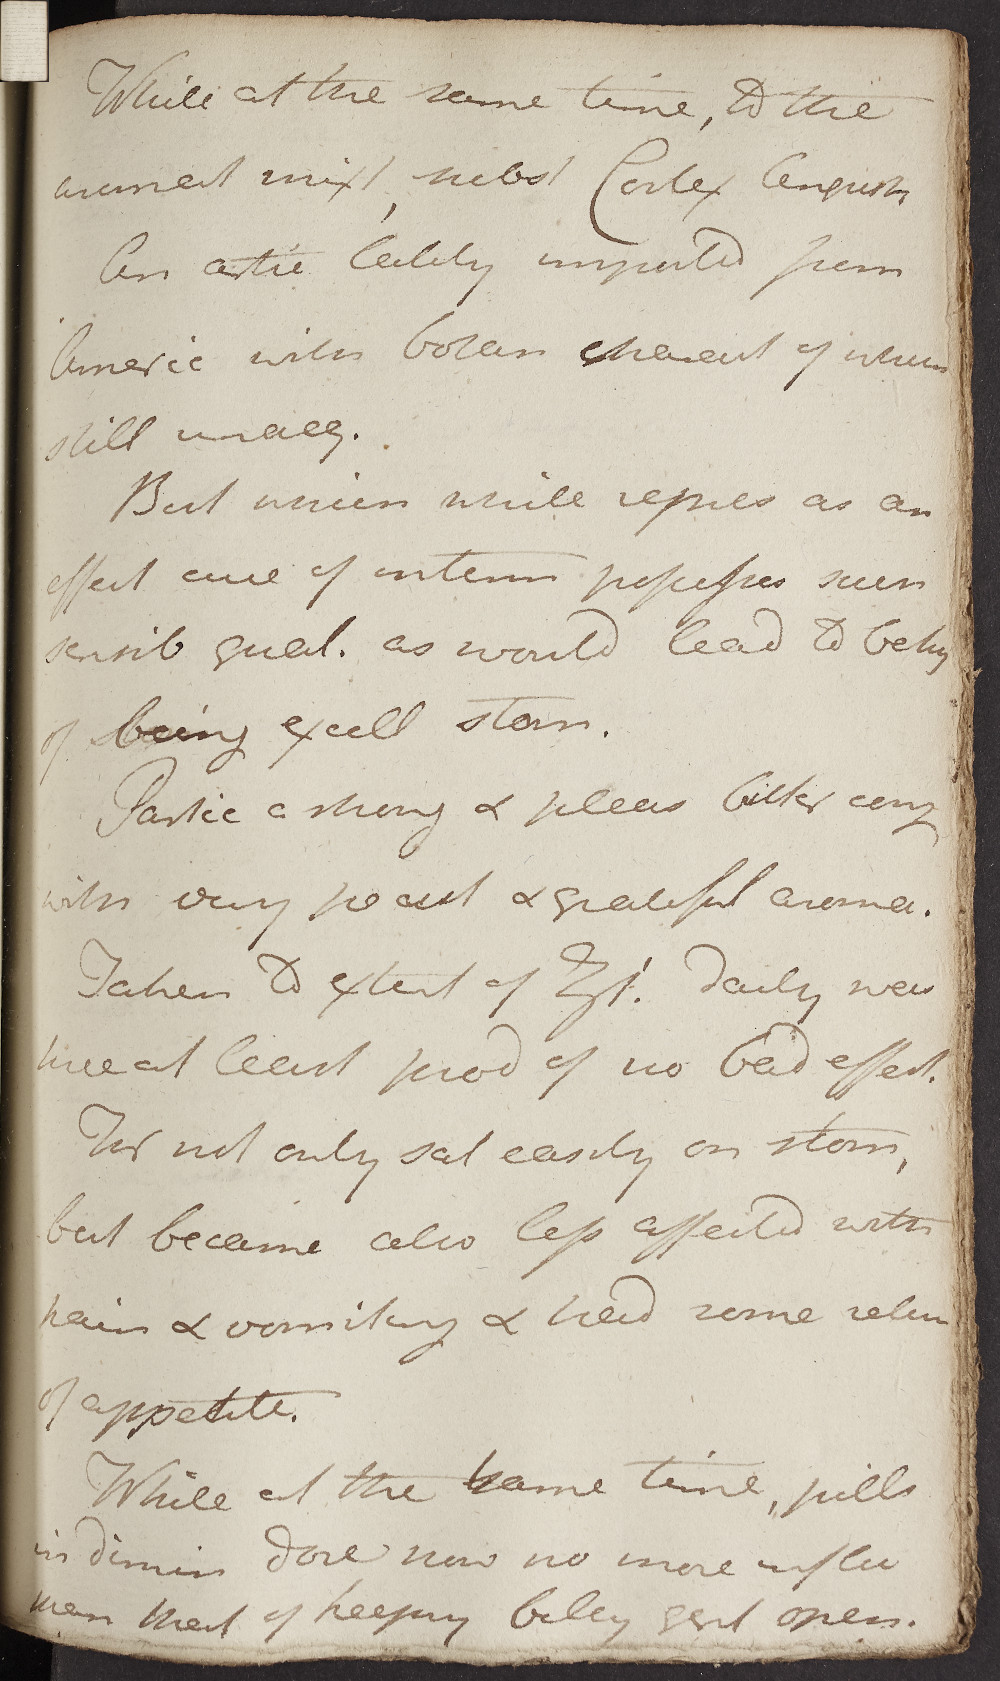 While at the same time, to the
ament mixt, subst Cortex Angust
An artic lately imported from
Americ with botan charact of whch
still unacq.
But which while repres as an
effect cure of interm possesses such
sensib qual. as would lead to belief
of being excell stom.
Partic a strong & pleas bitter conj
with very peculi & grateful aroma.
Taken to extent of ʒi. daily was
here at least prod of no bad effect.
For not only sat easily on stom,
but became also less affected with
pain & vomiting & had some return
of appetite.
While at the same time, pills
in dimin dose now no more influ
than that of keeping belly gent open.